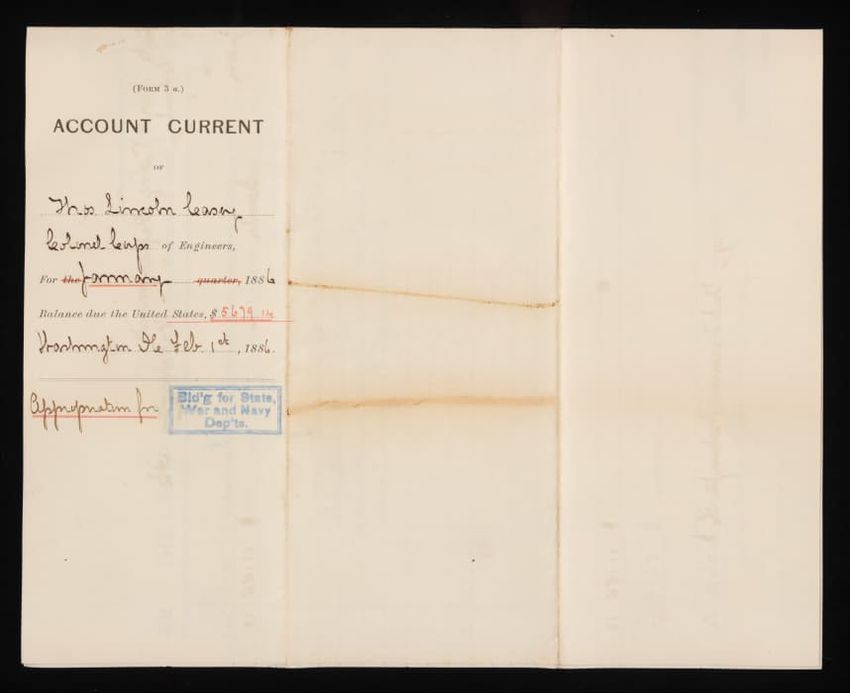 (FORM 3 a.)
ACCOUNT CURRENT
OF
Thos Lincoln Casey
Colonel Corps of Engineers,
For the January quarter, 1886
Balance due the United States, $ 5679.14
Washington DC Feb. 1st, 1886.
Appropriation for
Bld'g for State,
War and Navy
Dep'ts.